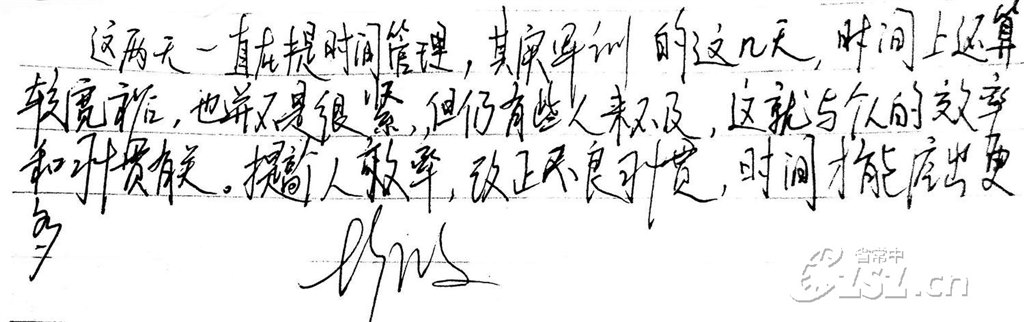 这两天一直在提时间管理，其实军训的这几天，时间上还算
较宽裕，也并不是很紧，但仍有些人来不及，这就与个人的效率
和习惯有关。提高人效率，改正不良习惯，时间才能空出更
多
省常中
CZSLZ.cn